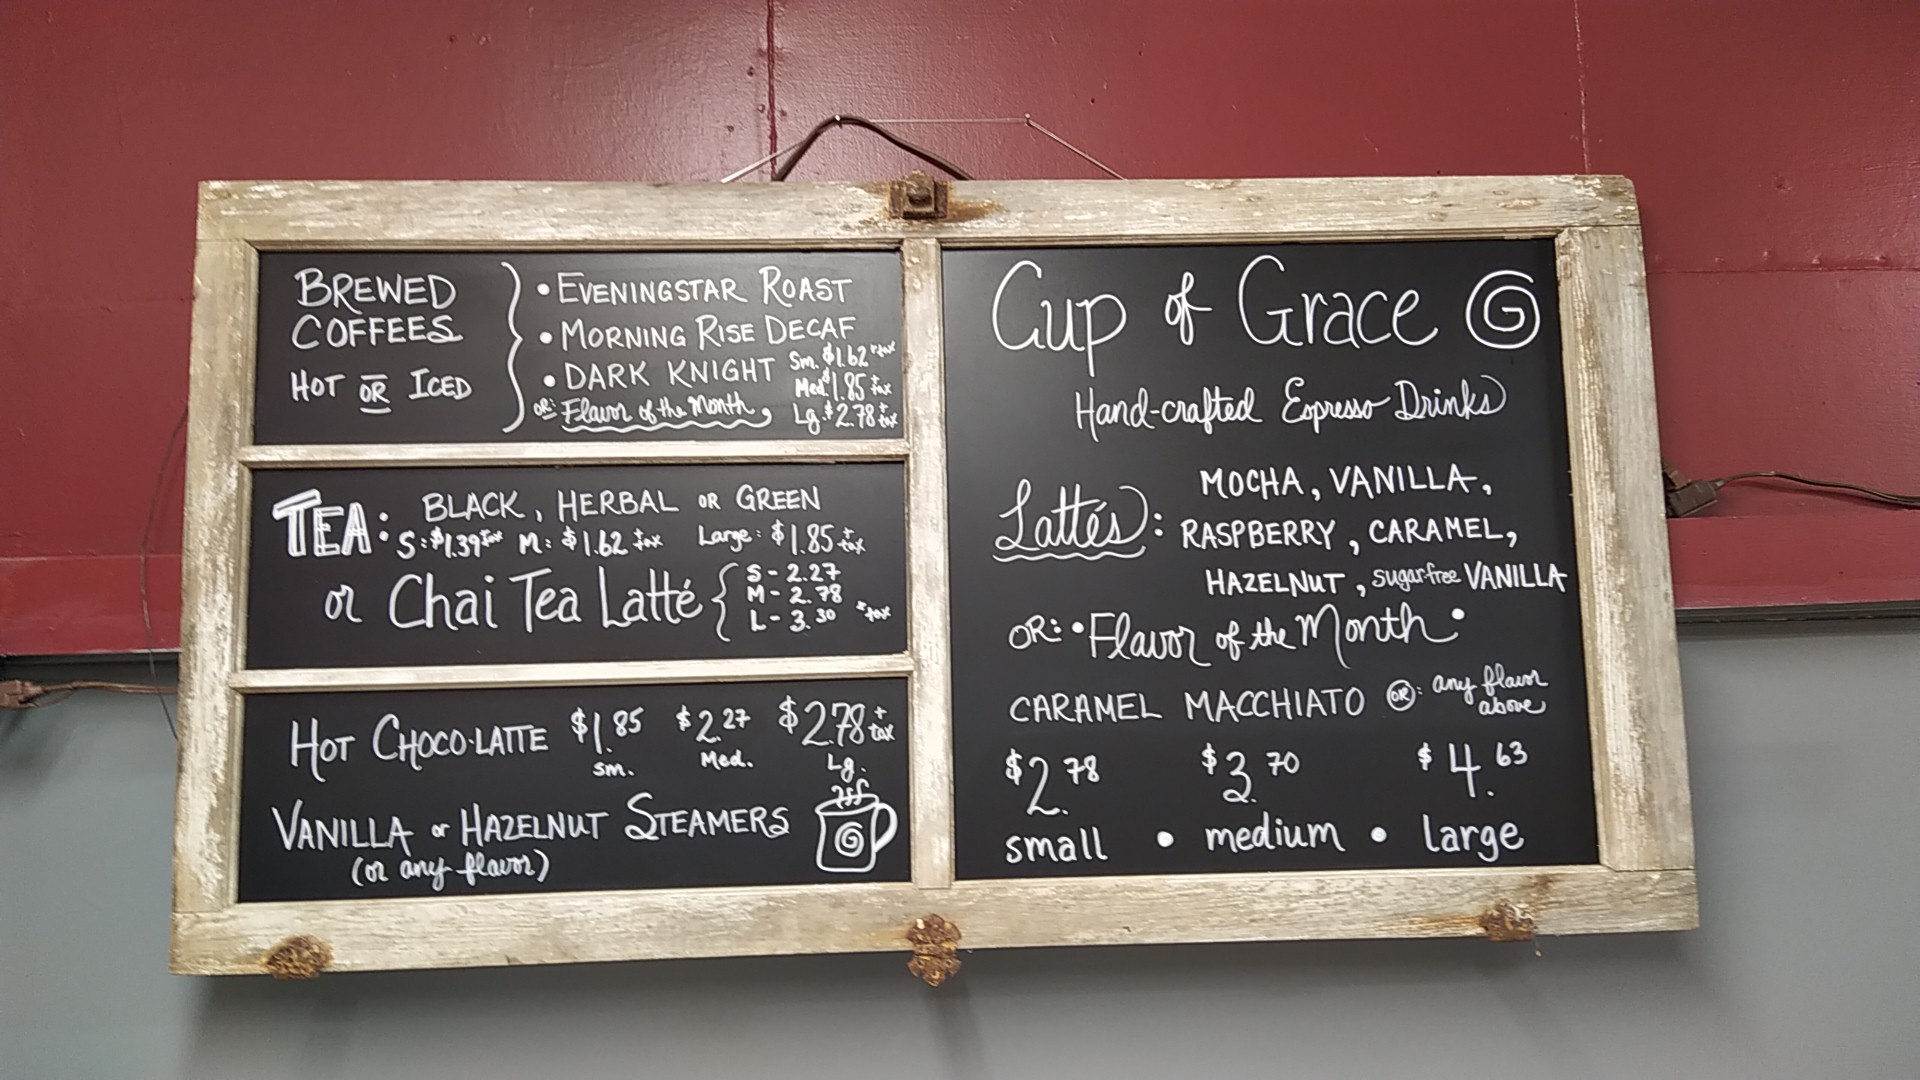 BREWED
COFFEES
HOT OR ICED
• EVENINGSTAR ROAST
• MORNING RISE DECAF
• DARK KNIGHT
OR: Flavor of the Month
Sm. $1.62 + tax
Med. $1.85 + tax
Lg. $2.78 + tax
TEA: BLACK, HERBAL OR GREEN
S: $1.39 + tax M: $1.62 + tax Large: $1.85 + tax
or Chai Tea Latté
S - 2.27
M - 2.78
L - 3.30 + tax
HOT CHOCO·LATTE $1.85 $2.27 $2.78 + tax
sm. Med. Lg.
VANILLA or HAZELNUT STEAMERS
(or any flavor)
G
Cup of Grace G
Hand-crafted Espresso Drinks
Lattés: MOCHA, VANILLA,
RASPBERRY, CARAMEL,
HAZELNUT, sugar-free VANILLA
OR: • Flavor of the Month •
CARAMEL MACCHIATO OR: any flavor
above
$2.78 $3.70 $4.63
small • medium • large